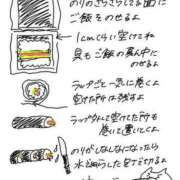 のりのざらざらしてる面に
ご飯をのせるよ
1cmくらい空けてね
具もご飯の真ん中に
のせるよ
ラップごと一気に巻くよ
空けた所は残すよ
ラップ外して空けた所も
巻いて置いてくよ
のりがしなしなになったら
水でぬらした包丁で切るよ